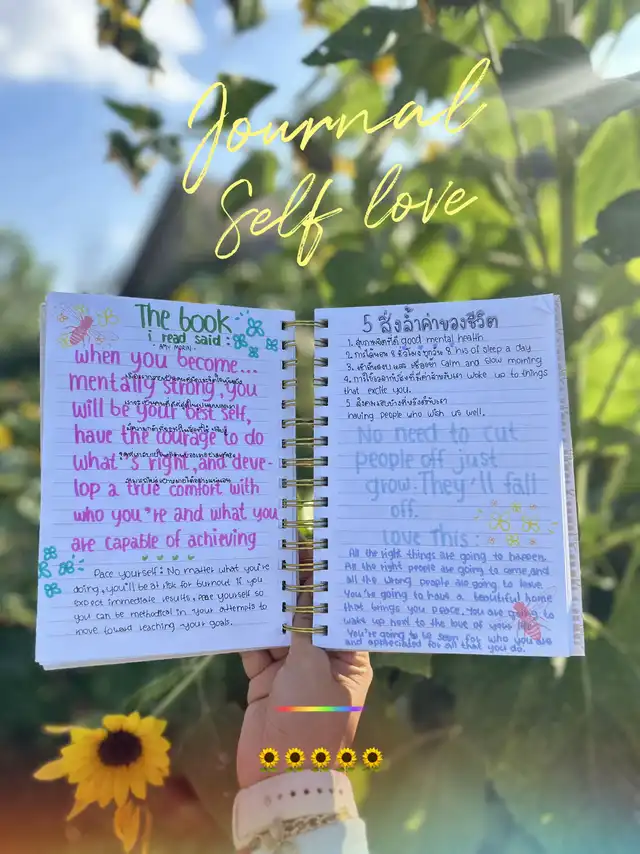 Journal
Self love
The book
i read said:
- AMY MORIN -
when you become...
mentally strong, you
will be your best self,
have the courage to do
what"s right, and deve-
lop a true comfort with
who you"re and what you
are capable of achieving
Pace yourself: No matter what you're
doing, you'll be at risk for burnout if you
expect immediate results, Pace yourself so
you can be methodical in your attempts to
move toward reaching your goal.
5 สิ่งล้ำค่าของชีวิต
1. สุขภาพจิตที่ดี good mental health
2. การได้นอน 8 ชั่วโมงทุกวัน 8 hrs of sleep a day
calm and slow morning
wake up to things
that excite you.
having people who wish us well.
No need to cut
people off just
grow. They'll fall
off.
Love this:
All the right things are going to happen.
All the right people are going to come, and
all the wrong people are going to leave.
You're going to have a beautiful home
that brings you peace. You are going to
wake up next to the love of your life.
You're going to be seen for who you are
and appreciated for all that you do.